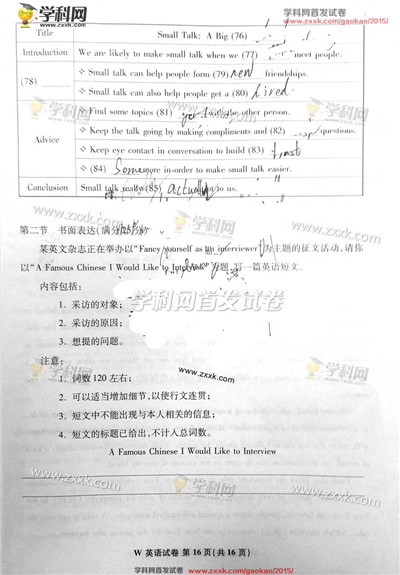 学科网首发试卷
www.zxxk.com/gaokao/2015/
学科网
www.zxxk.com
Title
Small Talk: A Big (76)
Introduction
We are likely to make small talk when we (77) meet people.
(78)
Small talk can help people form (79) new friendships.
Small talk can also help people get a (80)
Advice
Find some topics (81) with the other person.
Keep the talk going by making compliments and (82) questions.
Keep eye contact in conversation to build (83) trust
(84) in order to make small talk easier.
Conclusion
Small talk really (85) actually to us.
第二节 书面表达(满分25分)
某英文杂志正在举办以“Fancy yourself as an interviewer”为主题的征文活动,请你
以“A Famous Chinese I Would Like to Interview”为题,写一篇英语短文。
学科网首发试卷
内容包括:
1. 采访的对象;
2. 采访的原因;
3. 想提的问题。
注意:
1. 词数120左右;
2. 可以适当增加细节,以使行文连贯;
3. 短文中不能出现与本人相关的信息;
4. 短文的标题已给出,不计入总词数。
A Famous Chinese I Would Like to Interview
W 英语试卷 第16页(共16页)
学科网首发试卷
www.zxxk.com/gaokao/2015/